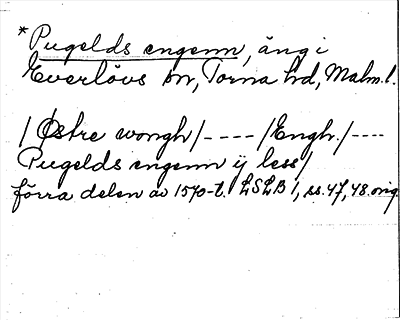 *Pugelds engenn, äng i
Everlövs sn, Torna hd, Malm. l.
/Østre wongh/---- /Engh./----
Pugelds engenn ij less/
förra delen av 1570-t. LSLB 1, ss. 47, 48. orig.